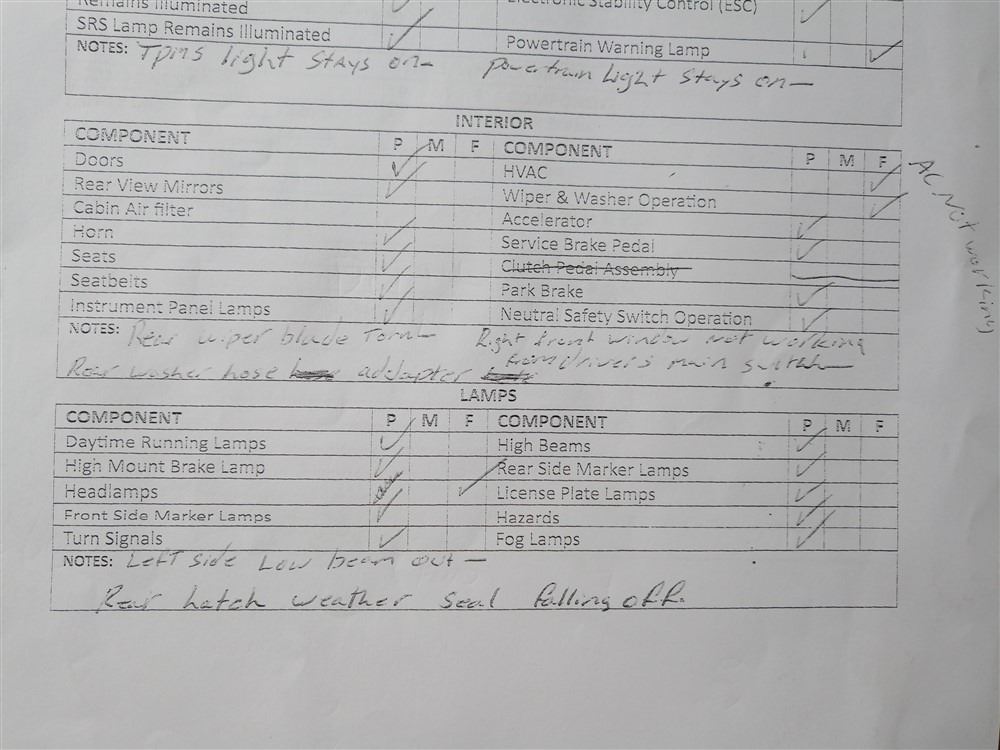 Remains Illuminated Electronic Stability Control (ESC)
SRS Lamp Remains Illuminated
Powertrain Warning Lamp
NOTES: Tpms light stays on— powertrain light stays on—
INTERIOR
COMPONENT P M F COMPONENT P M F
Doors HVAC
Rear View Mirrors Wiper & Washer Operation
Cabin Air filter Accelerator
Horn Service Brake Pedal
Seats Clutch Pedal Assembly
Seatbelts Park Brake
Instrument Panel Lamps Neutral Safety Switch Operation
AC Not working
NOTES: Rear wiper blade Torn— Right front window not working
from drivers main switch—
Rear washer hose addapter
LAMPS
COMPONENT P M F COMPONENT P M F
Daytime Running Lamps High Beams
High Mount Brake Lamp Rear Side Marker Lamps
Headlamps License Plate Lamps
Front Side Marker Lamps Hazards
Turn Signals Fog Lamps
NOTES: Left side Low beam out —
Rear hatch weather seal falling off.